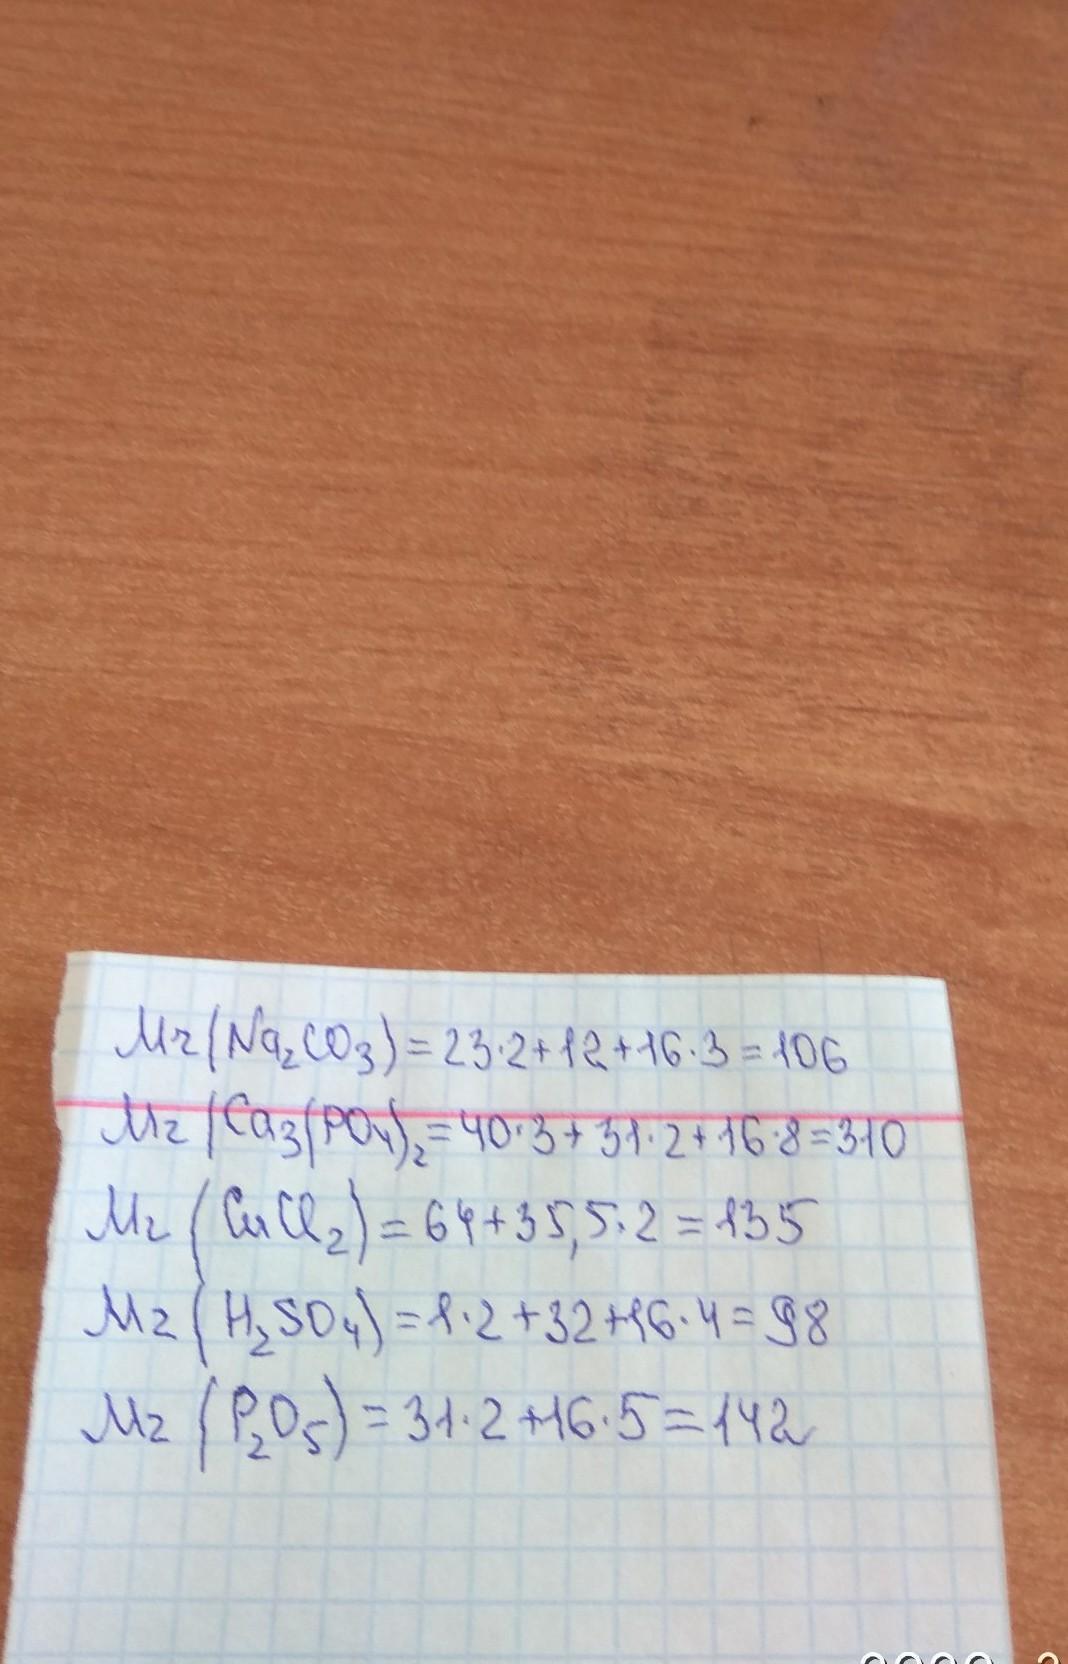 Mr(Na₂CO₃)=23·2+12+16·3=106
Mr(Ca₃(PO₄)₂=40·3+31·2+16·8=310
Mr(CuCl₂)=64+35,5·2=135
Mr(H₂SO₄)=1·2+32+16·4=98
Mr(P₂O₅)=31·2+16·5=142